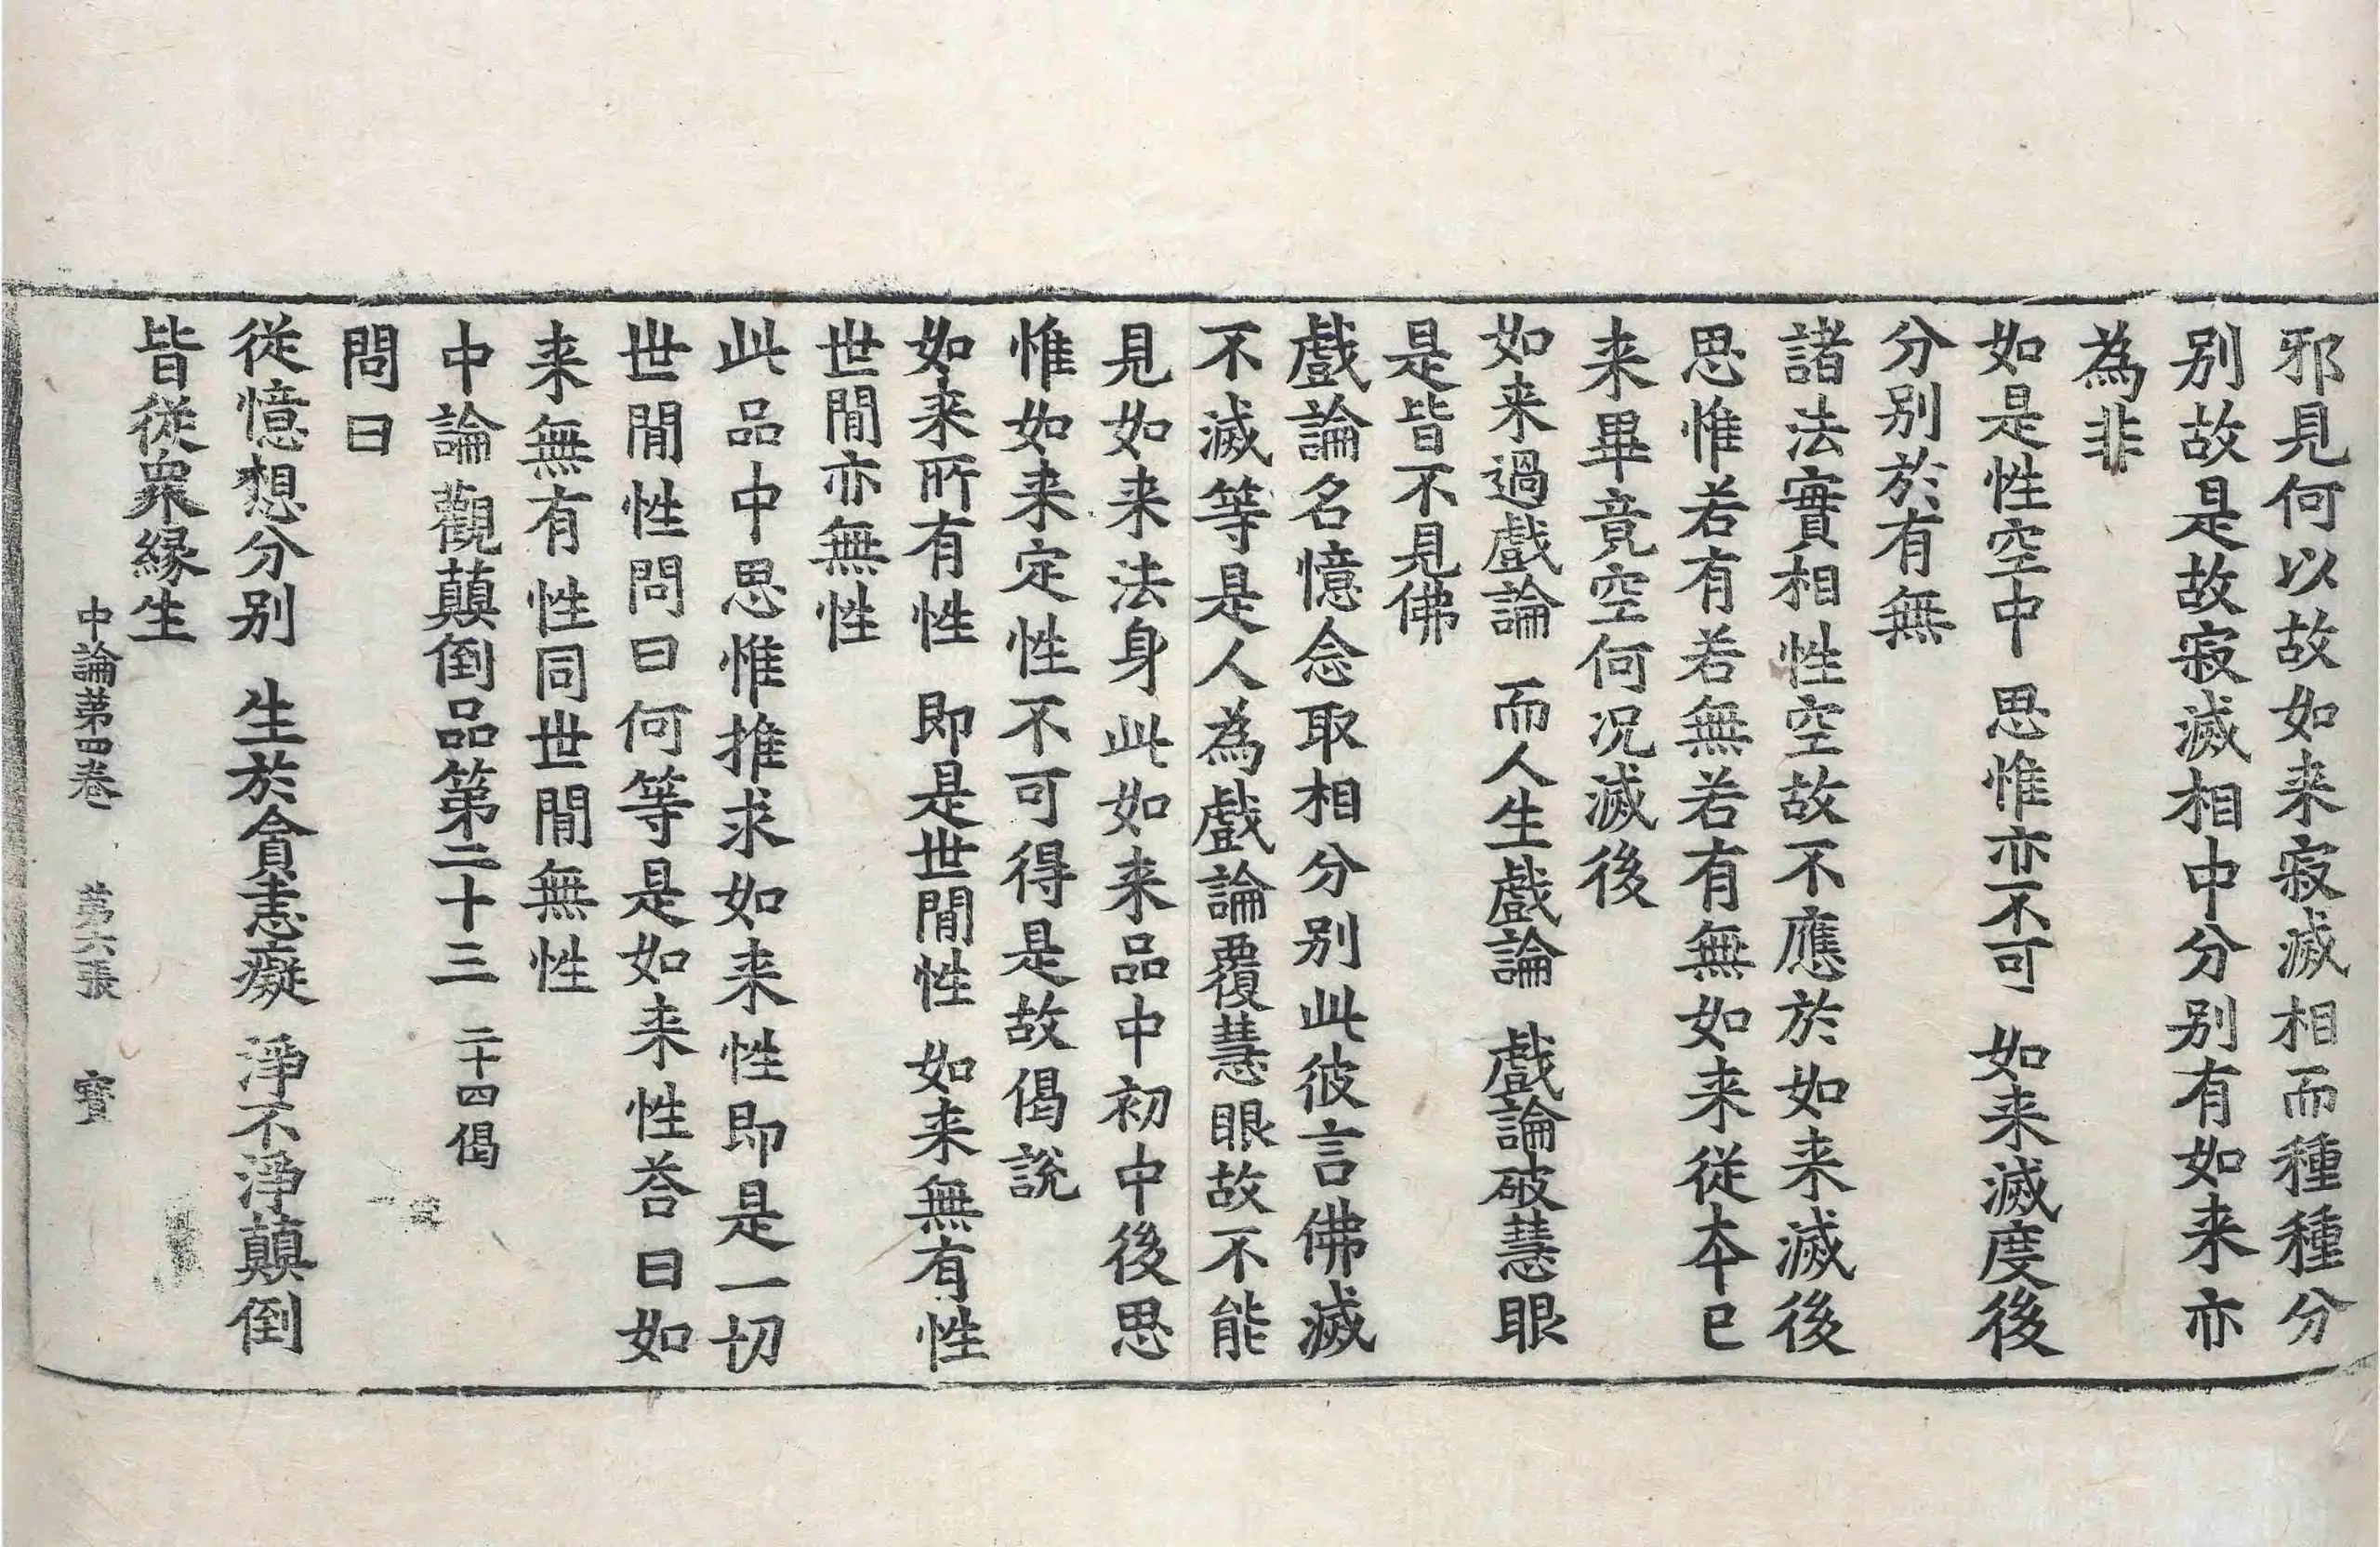 邪見何以故如来寂滅相而種種分
别故是故寂滅相中分别有如来亦
為非
如是性空中　思惟亦不可　如来滅度後
分别於有無
諸法實相性空故不應於如来滅後
思惟若有若無若有無如来從本已
来畢竟空何况滅後
如来過戲論　而人生戲論　戲論破慧眼
是皆不見佛
戲論名憶念取相分别此彼言佛滅
不滅等是人為戲論覆慧眼故不能
見如来法身此如来品中初中後思
惟如来定性不可得是故偈說
如来所有性　即是世間性　如来無有性
世間亦無性
此品中思惟推求如来性即是一切
世間性問曰何等是如来性荅曰如
来無有性同世間無性
中論觀顛倒品第二十三　二十四偈
問曰
從憶想分别　生於貪恚癡　淨不淨顛倒
皆從衆緣生
中論苐四卷　苐六張　寳